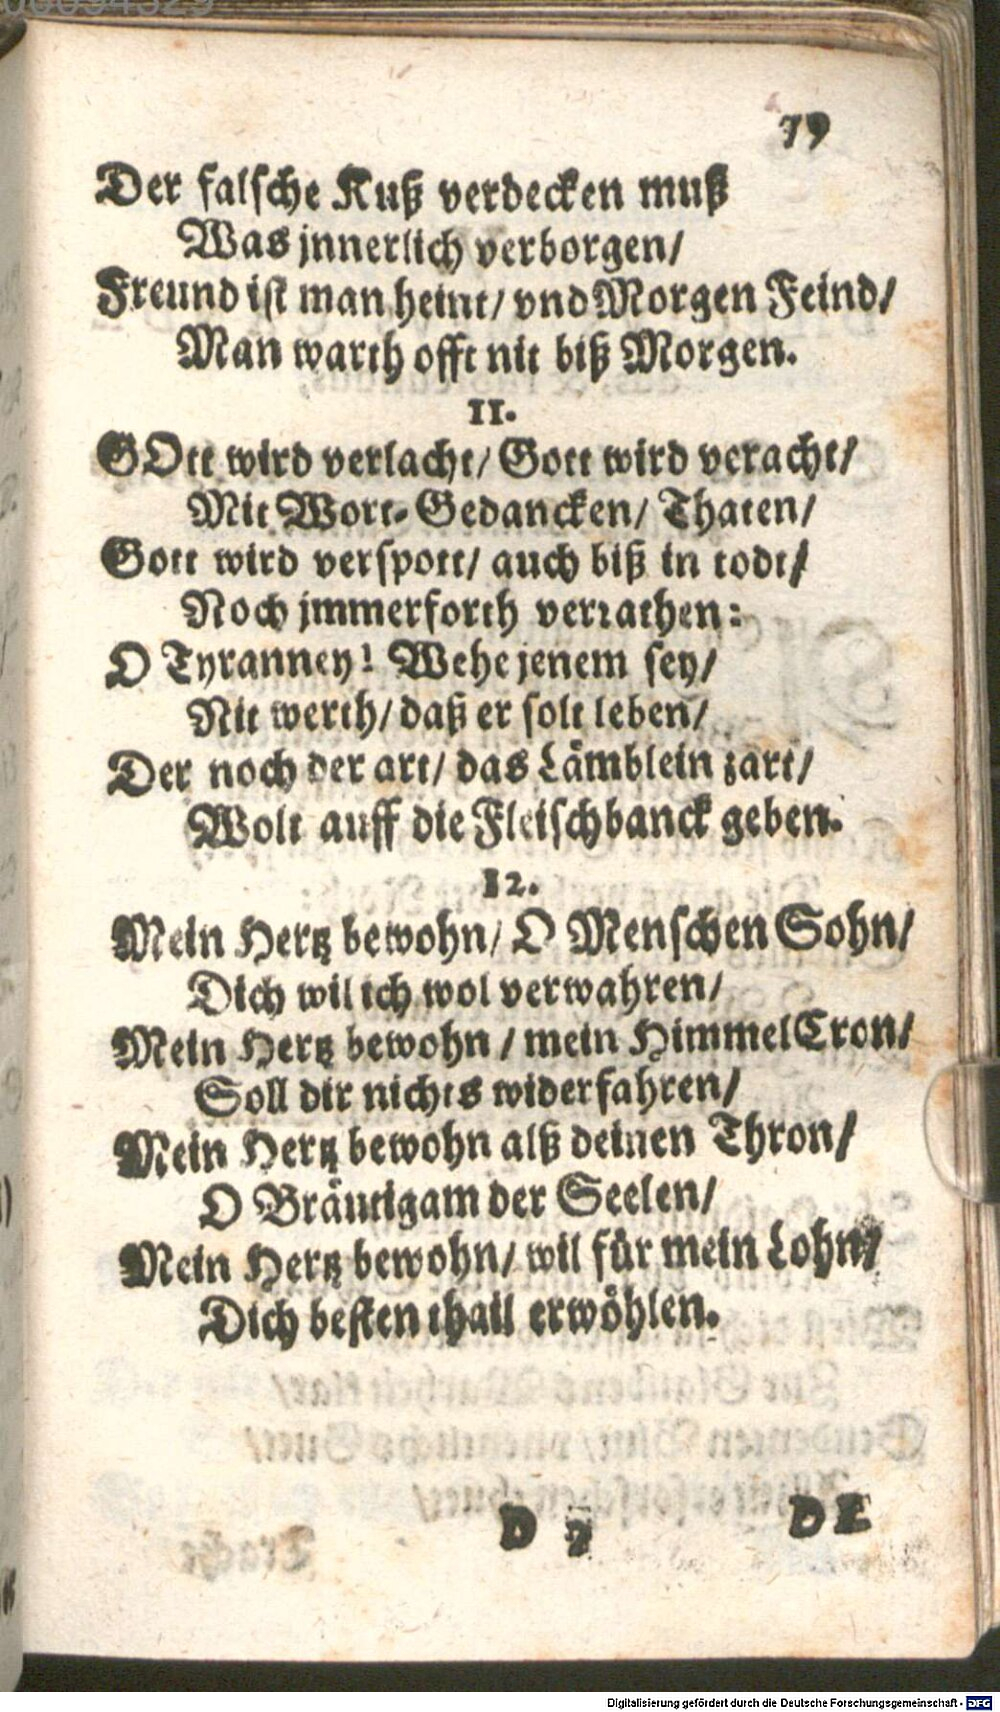 79
Der falsche Kuß verdecken muß
Was jnnerlich verborgen/
Freund ist man heint/ vnd Morgen Feind/
Man warth offt nit biß Morgen.
11.
GOtt wird verlacht/ Gott wird veracht/
Mit Wort-Gedancken/ Thaten/
Gott wird verspott/ auch biß in todt/
Noch jmmerforth verrathen:
O Tyranney! Wehe jenem sey/
Nit werth/ daß er solt leben/
Der noch der art/ das Lämblein zart/
Wolt auff die Fleischbanck geben.
12.
Mein Hertz bewohn/ O Menschen Sohn/
Dich wil ich wol verwahren/
Mein Hertz bewohn / mein Himmel Cron/
Soll dir nichts widerfahren/
Mein Hertz bewohn alß deinen Thron/
O Bräutigam der Seelen/
Mein Hertz bewohn/ wil für mein Lohn/
Dich besten thail erwöhlen.
D 7 DE
Digitalisierung gefördert durch die Deutsche Forschungsgemeinschaft - DFG